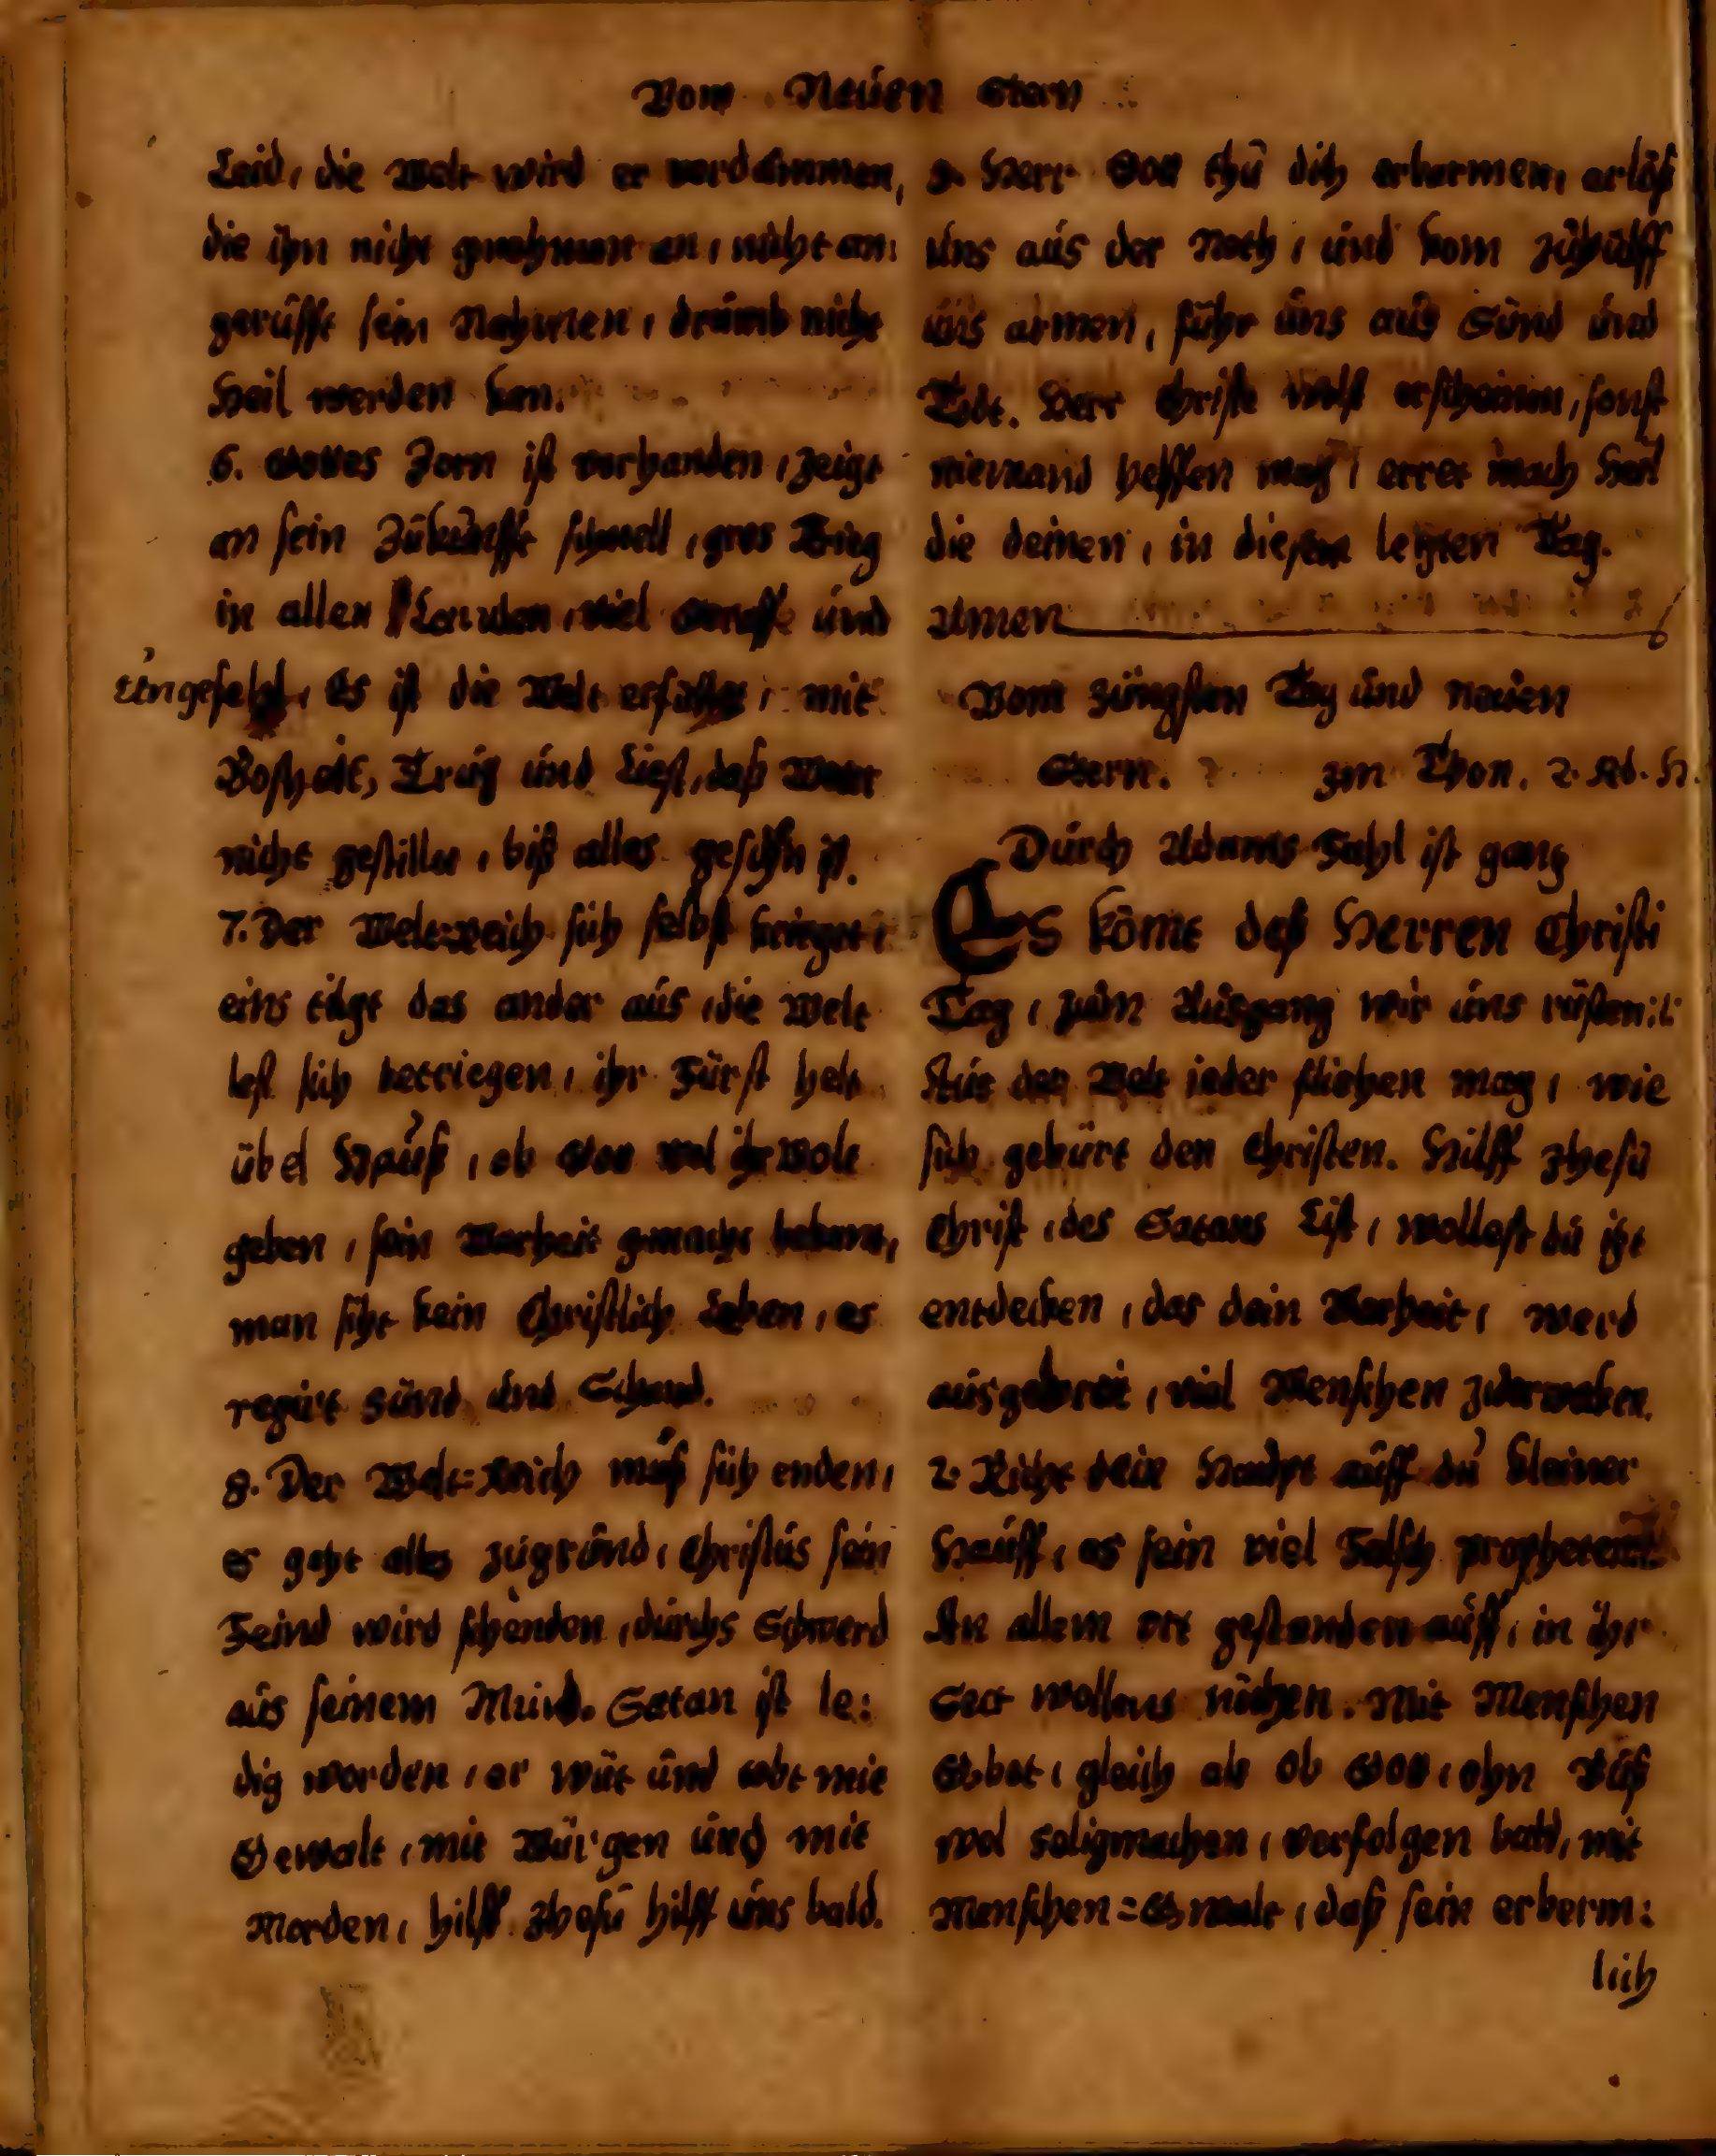 Vom Neuen Stern
Leid, die Welt wird er verdammen,
die ihn nicht gnohmen an, nicht an:
gerüfft sein Nahmen, drumb nicht
Heil werden kan.
6. Gottes Zorn ist vorhanden, zeigt
an sein Zukunfft schnell, gros Krieg
in allen Landen, viel Straffe und
Ungefell, Es ist die Welt erfüllet, mit
Bosheit, Trug und Liest, das Wort
nicht gestillet, biß alles geschehn ist.
7. Der Welt-Reich sich selbst krieget,
eins tilgt das ander aus, die Welt
lest sich betriegen, ihr Fürst helt
übel Hauß, ob Gott wol ihr wolt
geben, sein Warheit gmacht bekant,
man siht kein Christlich Leben, es
regirt Sünd und Schand.
8. Der Welt=Reich muß sich enden,
es geht alles zugrund, Christus sein
Feind wird schenden, durchs Schwerd
aus seinem Mund. Satan ist le:
dig worden, er wüt und tobt mit
Gewalt, mit Würgen und mit
Morden, hilff Jhesu hilff uns bald.
9. Herr Gott thu dich erbarmen, erlöß
uns aus der Noth, und kom zuhülff
uns armen, führ uns aus Sünd und
Todt. Herr Christe wolst erscheinen, sonst
niemand helffen mag, erret mach Heil
die deinen, in diesem letzten Tag.
Amen
Vom Jüngsten Tag und Neuen
Stern. Im Thon. 2.
Durch Adams Fahl ist gantz
Es kömt deß Herren Christi
Tag, zum Ausgang wir uns rüsten:
Aus der Welt ieder fliehen mag, wie
sich gebürt den Christen. Hilff Jhesu
Christ, des Satans List, wollest du itzt
entdecken, das dein Warheit, werd
ausgebreit, viel Menschen zuerweken.
2. Richt dein Haubt auff du kleiner
Hauff, es sein viel Falsch propheten
An allem ort gestanden auff, in ihr
Sect wollens nöthen. Mit Menschen
Gbot, gleich als ob Gott, ohn Buß
wol seligmachen, verfolgen bald, mit
Menschen=Gwalt, daß sein erberm:
lich